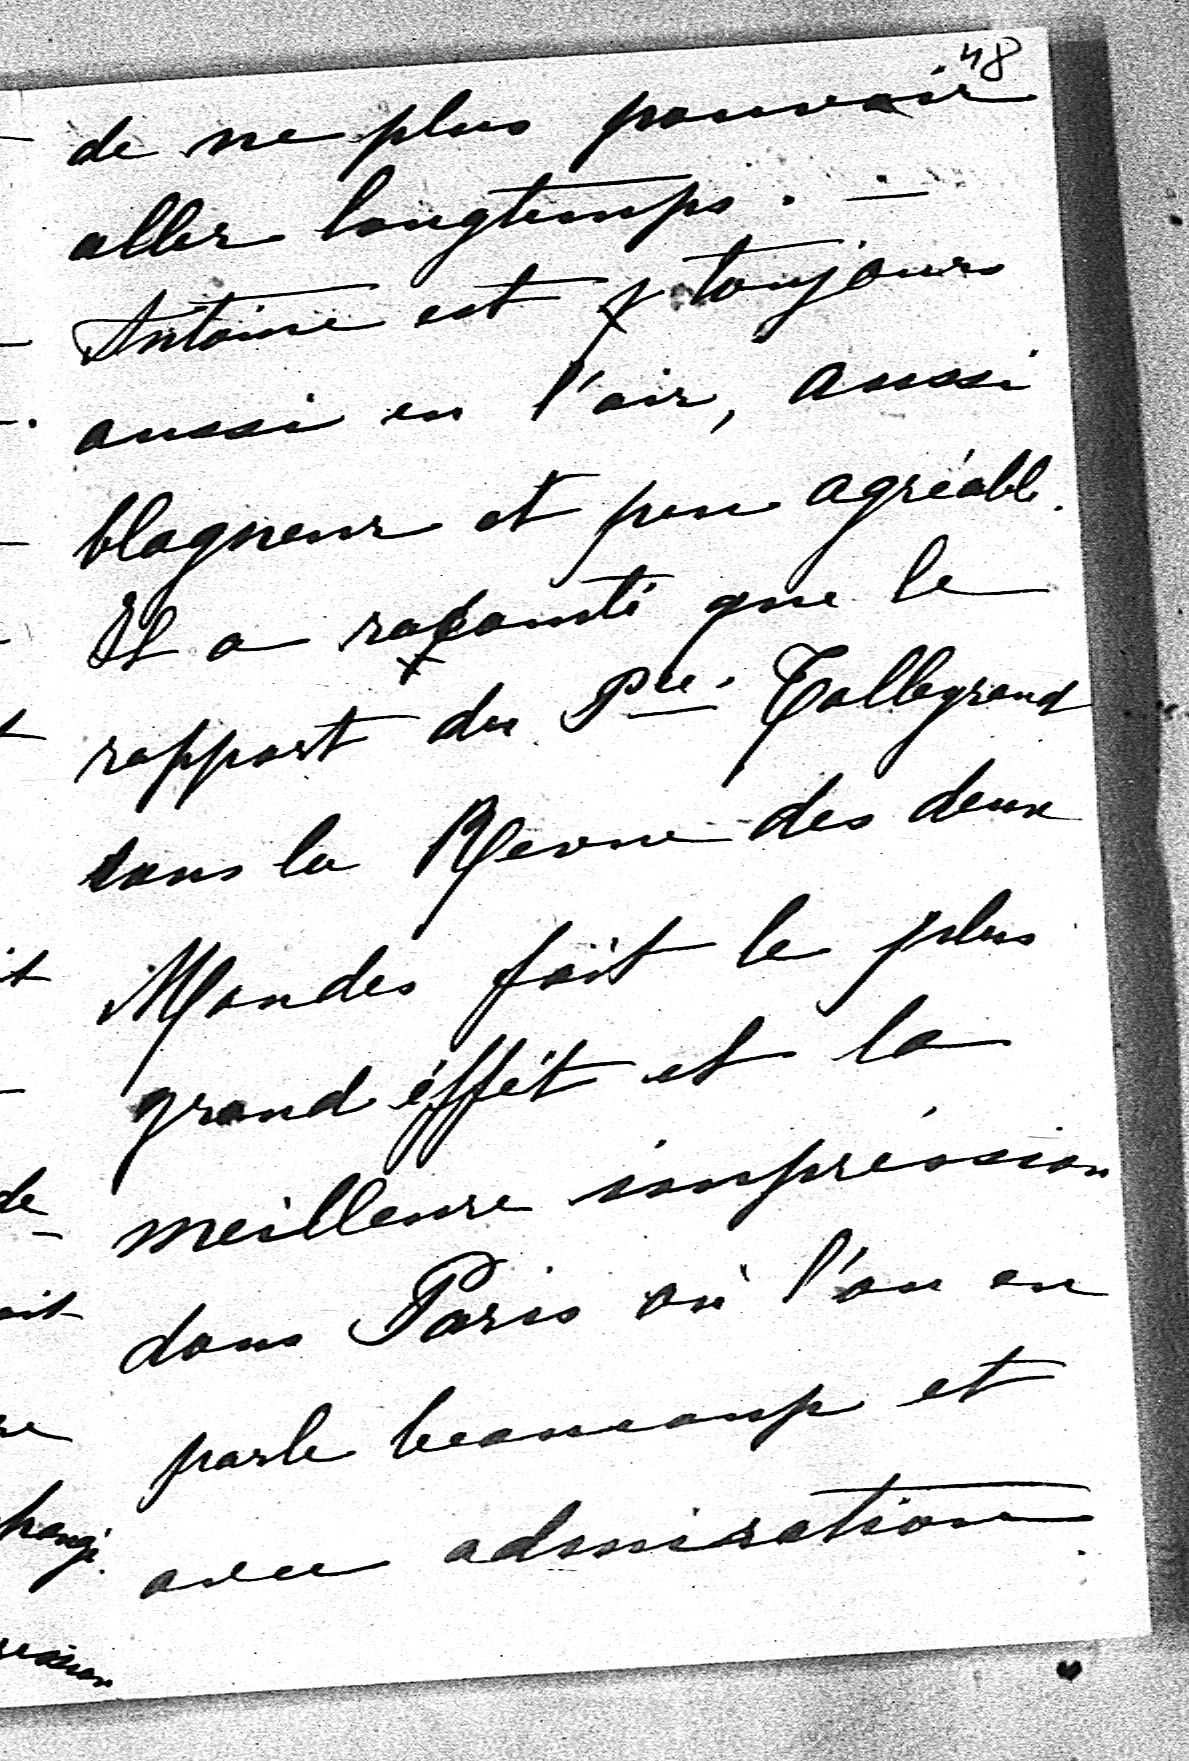 48
de ne plus pouvoir
aller longtemps. —
Antoine est toujours
aussi en l'air, aussi
blagueur et peu agréable.
Il a raconté que le
rapport du Pce. Talleyrand
dans la Revue des deux
Mondes fait le plus
grand éffét et la
meilleure impréssion
dans Paris où l'on en
parle beaucoup et
avec admiration.